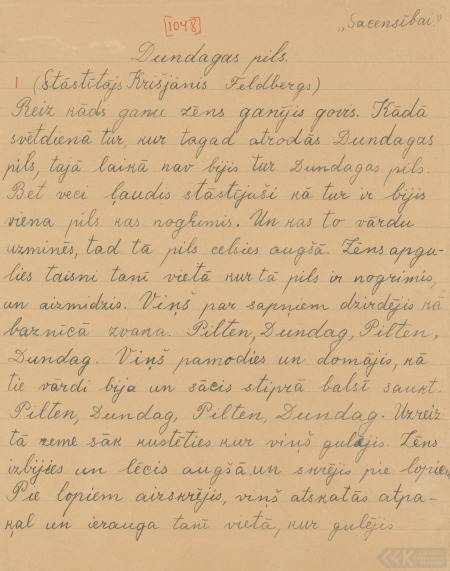 [1048]
"Sacensībai."
Dundagas pils.
1 (Stāstītājs Krišjānis Feldbergs)
Reiz kāds ganu zēns ganījis govis. Kādā
svētdienā tur, kur tagad atrodās Dundagas
pils, tajā laikā nav bijis tur Dundagas pils.
Bet veci ļaudis stāstījuši kā tur ir bijis
viena pils kas nogrimis. Un kas to vārdu
uzminēs, tad tā pils celsies augšā. Zēns apgu-
lies taisni tanī vietā kur tā pils ir nogrimis,
un aizmidzis. Viņš par sapņiem dzirdējis kā
baznīcā zvana. Pilten, Dundag, Pilten,
Dundag. Viņš pamodies un domājis, kā
tie vārdi bija un sācis stiprā balsī saukt.
Pilten, Dundag, Pilten, Dundag. Uzreiz
tā zeme sāk kustēties kur viņš gulējis. Zēns
izbijies un lēcis augšā un skrējis pie lopiem
Pie lopiem aizskrējis, viņš atskatās atpa-
kaļ un ierauga tanī vietā, kur gulējis